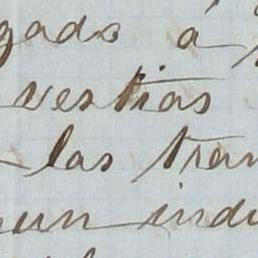 gado á
vestias
las tran
un indi